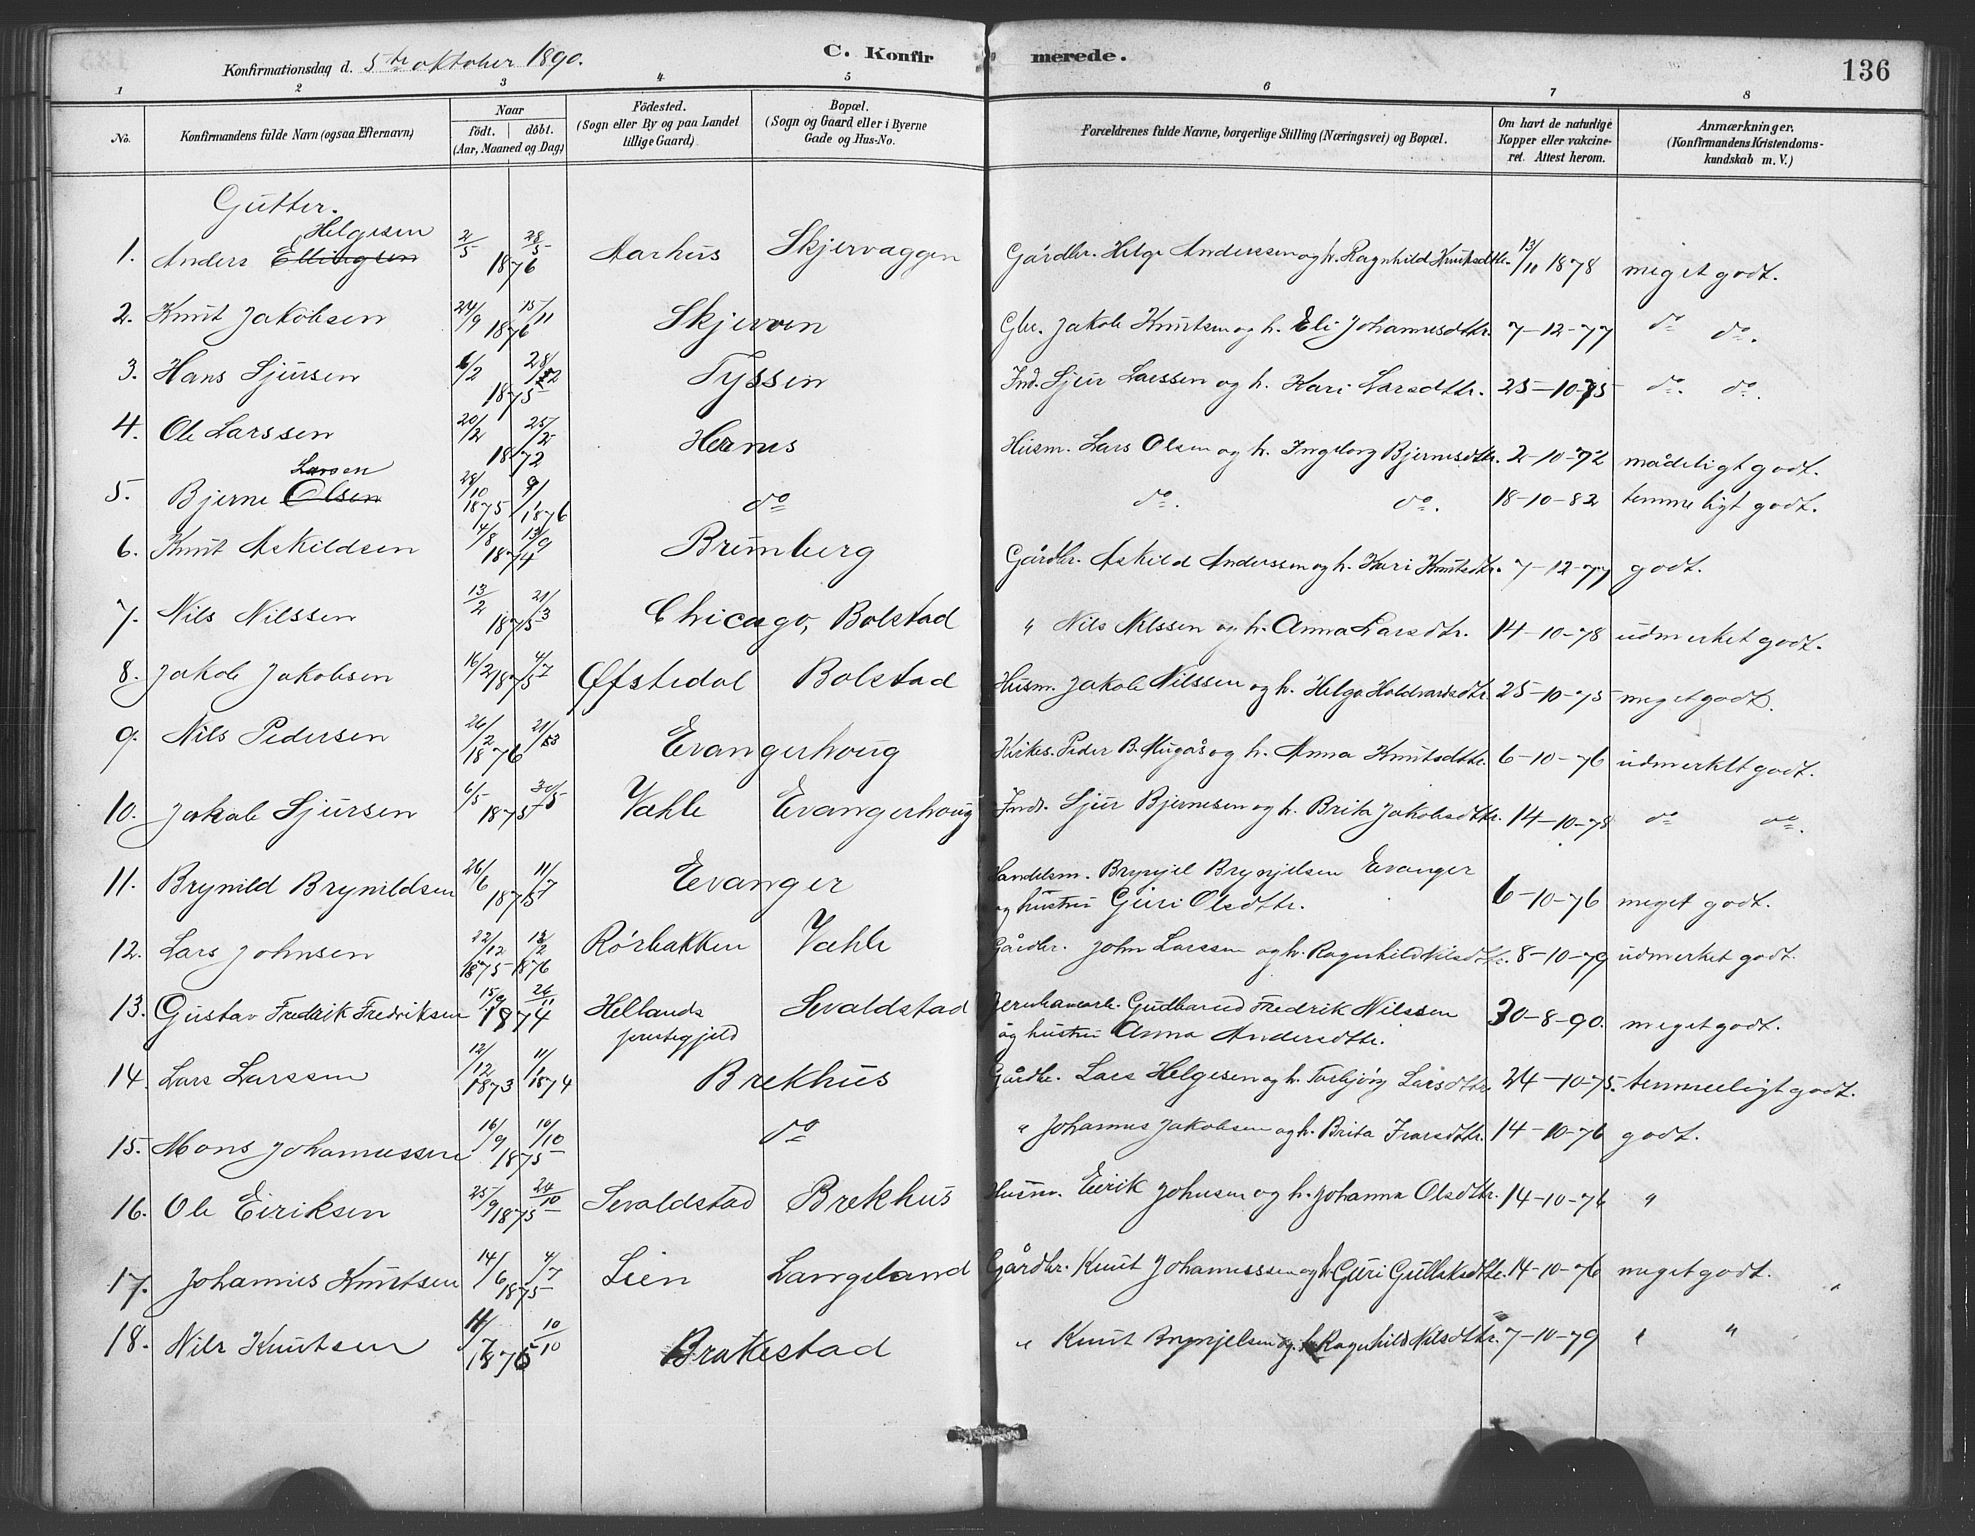 Konfirmationsdag d. 5te oktober 1890.
C. Konfirmerede.
136
1 2 3 4 5 6 7 8
No.
Konfirmandens fulde Navn (ogsaa Efternavn)
Naar
födt. döbt.
(Aar, Maaned og Dag)
Födested.
(Sogn eller By og paa Landet
tillige Gaard)
Bopæl.
(Sogn og Gaard eller i Byerne
Gade og Hus-No.
Forældrenes fulde Navne, borgerlige Stilling (Næringsvei) og Bopæl.
Om havt de naturlige
Kopper eller vakcine-
ret. Attest herom.
Anmærkninger.
(Konfirmandens Kristendoms-
kundskab m. V.)
Gutter.
Helgesen
1. Anders Ellingsen 2/5 28/5 1876 Aarhus Skjervaggen Gårdbr. Helge Anderssen og h. Ragnhild Knutsdttr. 13/11 1878 meget godt.
2. Knut Jakobsen 24/9 15/11 1876 Skjerven Gbr. Jakob Knutsen og h. Eli Johannesdttr. 7-12-77 do do.
3. Hans Sjursen 6/2 28/2 1875 Tyssen Ind. Sjur Larssen og h. Kari Larsdttr. 25-10-75 do. do.
4. Ole Larssen 20/2 25/2 1872 Hernes Husm. Lars Olsen og h. Ingeborg Bjernesdttr. 2-10-72 mådeligt godt.
Larsen
5. Bjerne Olsen 28/10 1875 9/1 1876 do do. do. 18-10-82 temmeligt godt.
6. Knut Askildsen 14/8 13/9 1874 Brunberg Gårdbr. Askild Anderssen og h. Kari Knutsdtr. 7-12-77 godt.
7. Nils Nilssen 13/2 21/3 1875 Chicago, Bolstad " Nils Nilssen og h. Anna Larsdtr. 14-10-78 udmerket godt.
8. Jakob Jakobsen 16/2 1875 4/7 Øfstedal Bolstad Husm. Jakob Nilssen og h. Helga Haldvardsdtr. 25-10-75 meget godt.
9. Nils Pedersen 26/2 1876 21/3 Evangerhoug Kirkes. Peder B. Mugås og h. Anna Knutsdttr. 6-10-76 udmerket godt.
10. Jakob Sjursen 6/5 30/5 1875 Væhle Evangerhoug Ind. Sjur Bjernesen og h. Brita Jakobsdttr. 14-10-78 do do.
11. Brynild Brynildsen 26/6 11/7 1875 Evanger Handelsm. Brynjel Brynjelsen Evanger
og hustru Guri Olsdttr. 6-10-76 meget godt.
12. Lars Johnsen 22/12 1875 13/2 1876 Rørbakken Væhle Gårdbr. John Larssen og h. Ragnhild Nilsdttr. 8-10-79 udmerket godt.
13. Gustav Fredrik Fredriksen 15/9 26/11 1874 Hellands
prestegjeld Sevaldstad Jernbanearb. Gudbrand Fredrik Nilssen
og hustru Anna Andersdttr. 30-8-90. meget godt.
14. Lars Larssen 12/12 1873 11/1 1874 Brekhus Gårdbr. Lars Helgesen og h. Torbjørg Larsdttr. 24-10-75. temmeligt godt.
15. Mons Johannessen 16/9 10/10 1875 do " Johannes Jakobsen og h. Brita Ivarsdttr. 14-10-76 godt.
16. Ole Eiriksen 25/9 24/10 1875 Sevaldstad Brekhus Husm. Eirik Johnsen og h. Johanna Olsdttr. 14-10-76 "
17. Johannes Knutsen 14/6 4/7 1875 Lien Langeland Gårdbr. Knut Johannessen og h. Guri Gulleksdttr. 14-10-76 meget godt.
18. Nils Knutsen 11/7 1875 10/10 Brakestad " Knut Brynjelsen og h. Ragnhild Nilsdttr. 7-10-79 " "